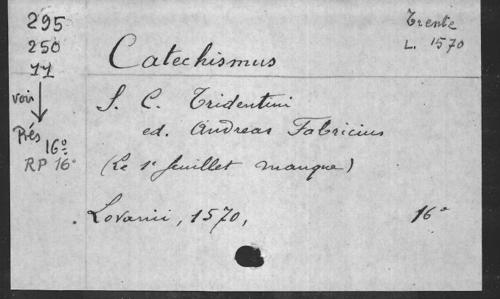 295
250
77
voir
Rés
16º
RP 16º
Trente
L. 1570
Catechismus
S. C. Tridentini
ed. Andreas Fabricius
(Le 1r feuillet manque)
Lovanii, 1570,
16º